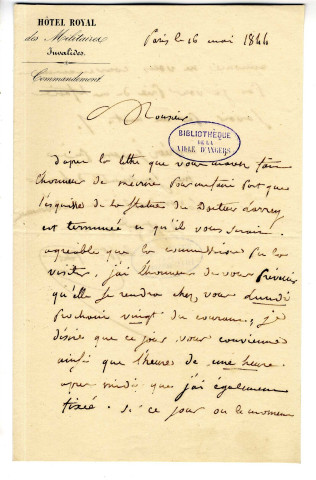 HÔTEL ROYAL
des Militaires
Invalides.
Commandement.
Paris le 16 mai 1844
Monsieur
BIBLIOTHÈQUE
DE LA
VILLE D'ANGERS
D'après la lettre que vous m'avez fait
l'honneur de m'écrire portant que
l'esquisse de la statue du Docteur Larrey
est terminée et qu'il vous serait
agréable que la commission put la
visiter. j'ai l'honneur de vous prévenir
qu'elle se rendra chez vous lundi
prochain vingt du courant, je
désire que ce jour vous convienne
ainsi que l'heure de une heure
après midi que j'ai également
fixée. si ce jour ou le moment